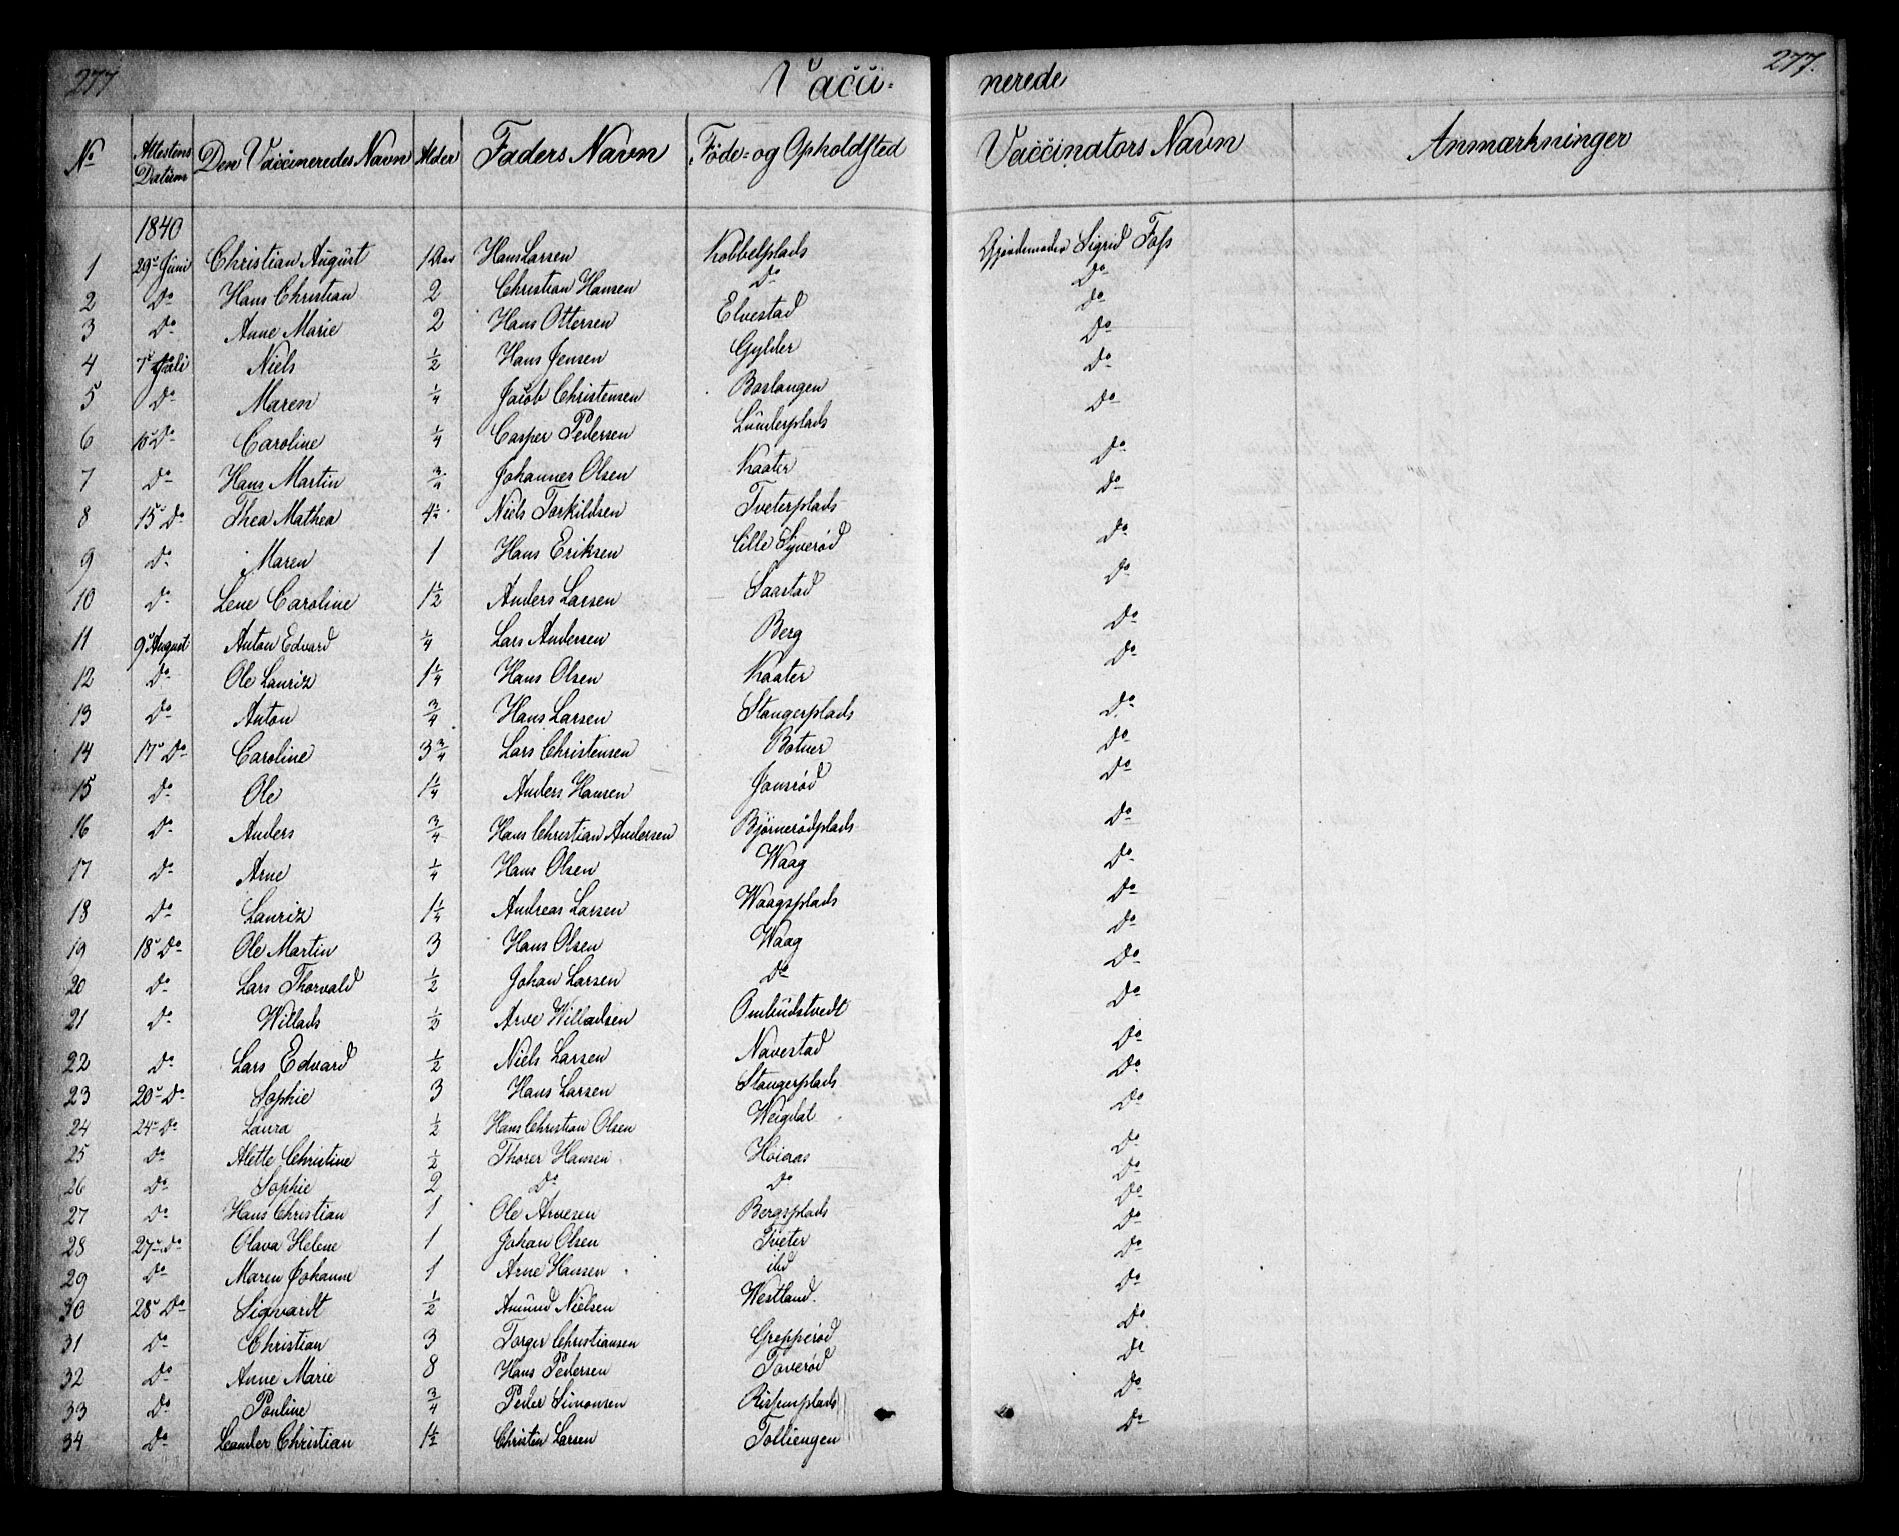 277 Vacci= nerede 277.
No Attestens Datum Den Vaccineredes Navn Alder Faders Navn Føde- og Opholdssted Vaccinators Navn Anmærkninger
1840
1 29 Juni Christian August 1 Hans Larsen Kobbelplads Gjordemoder Sigrid Foss
2 Do Hans Christian 2 Christian Hansen Do Do
3 Do Anne Marie 2 Hans Ottersen Elvestad Do
4 7 Juli Niels 1/2 Hans Jensen Gylder Do
5 Do Maren 1/4 Jacob Christensen Baslangen Do
6 Do Caroline 1/4 Casper Pedersen Lunderplads Do
7 Do Hans Martin 3/4 Johannes Olsen Kaater Do
8 15 Do Thea Mathea 4 1/2 Niels Torkildsen Tveterplads Do
9 Do Maren 1 Hans Eriksen Lille Syverød Do
10 Do Lene Caroline 1 1/2 Anders Larsen Saastad Do
11 9 August Anton Edvard 1/4 Lars Andersen Berg Do
12 Do Ole Lauriz 1 1/4 Hans Olsen Kaater Do
13 Do Anton 3/4 Hans Larsen Stangerplads Do
14 17 Do Caroline 3 3/4 Lars Christensen Botner Do
15 Do Ole 1 1/4 Anders Hansen Jonsrød Do
16 Do Anders 3/4 Hans Christian Andersen Bjørnerødplads Do
17 Do Arne 1/4 Hans Olsen Waag Do
18 Do Lauriz 1 1/4 Andreas Larsen Waagsplads Do
19 18 Do Ole Martin 3 Hans Olsen Waag Do
20 Do Lars Thorvald 1/2 Johan Larsen Do Do
21 Do Willads 1/2 Arve Willadsen Ombudstvedt Do
22 Do Lars Edvard 1/2 Niels Larsen Navestad Do
23 20 Do Sophie 3 Hans Larsen Stangerplads Do
24 24 Do Laura 1/2 Hans Christian Olsen Weigdal Do
25 Do Alette Christine 1/2 Thorer Hansen Høiaas Do
26 Do Sophie 2 Do Do Do
27 Do Hans Christian 1 Ole Arvesen Bergsplads Do
28 27 Do Olava Helene 1 Johan Olsen Tveter Do
29 Do Maren Johanne 1 Arne Hansen ibd Do
30 28 Do Sigvardt 1/2 Amund Nielsen Westland Do
31 Do Christian 3 Torger Christiansen Grepperød Do
32 Do Anne Marie 8 Hans Pedersen Toverød Do
33 Do Pauline 3/4 Peder Simonsen Risumplads Do
34 Do Leander Christian 1 1/2 Christen Larsen Tolliengen Do